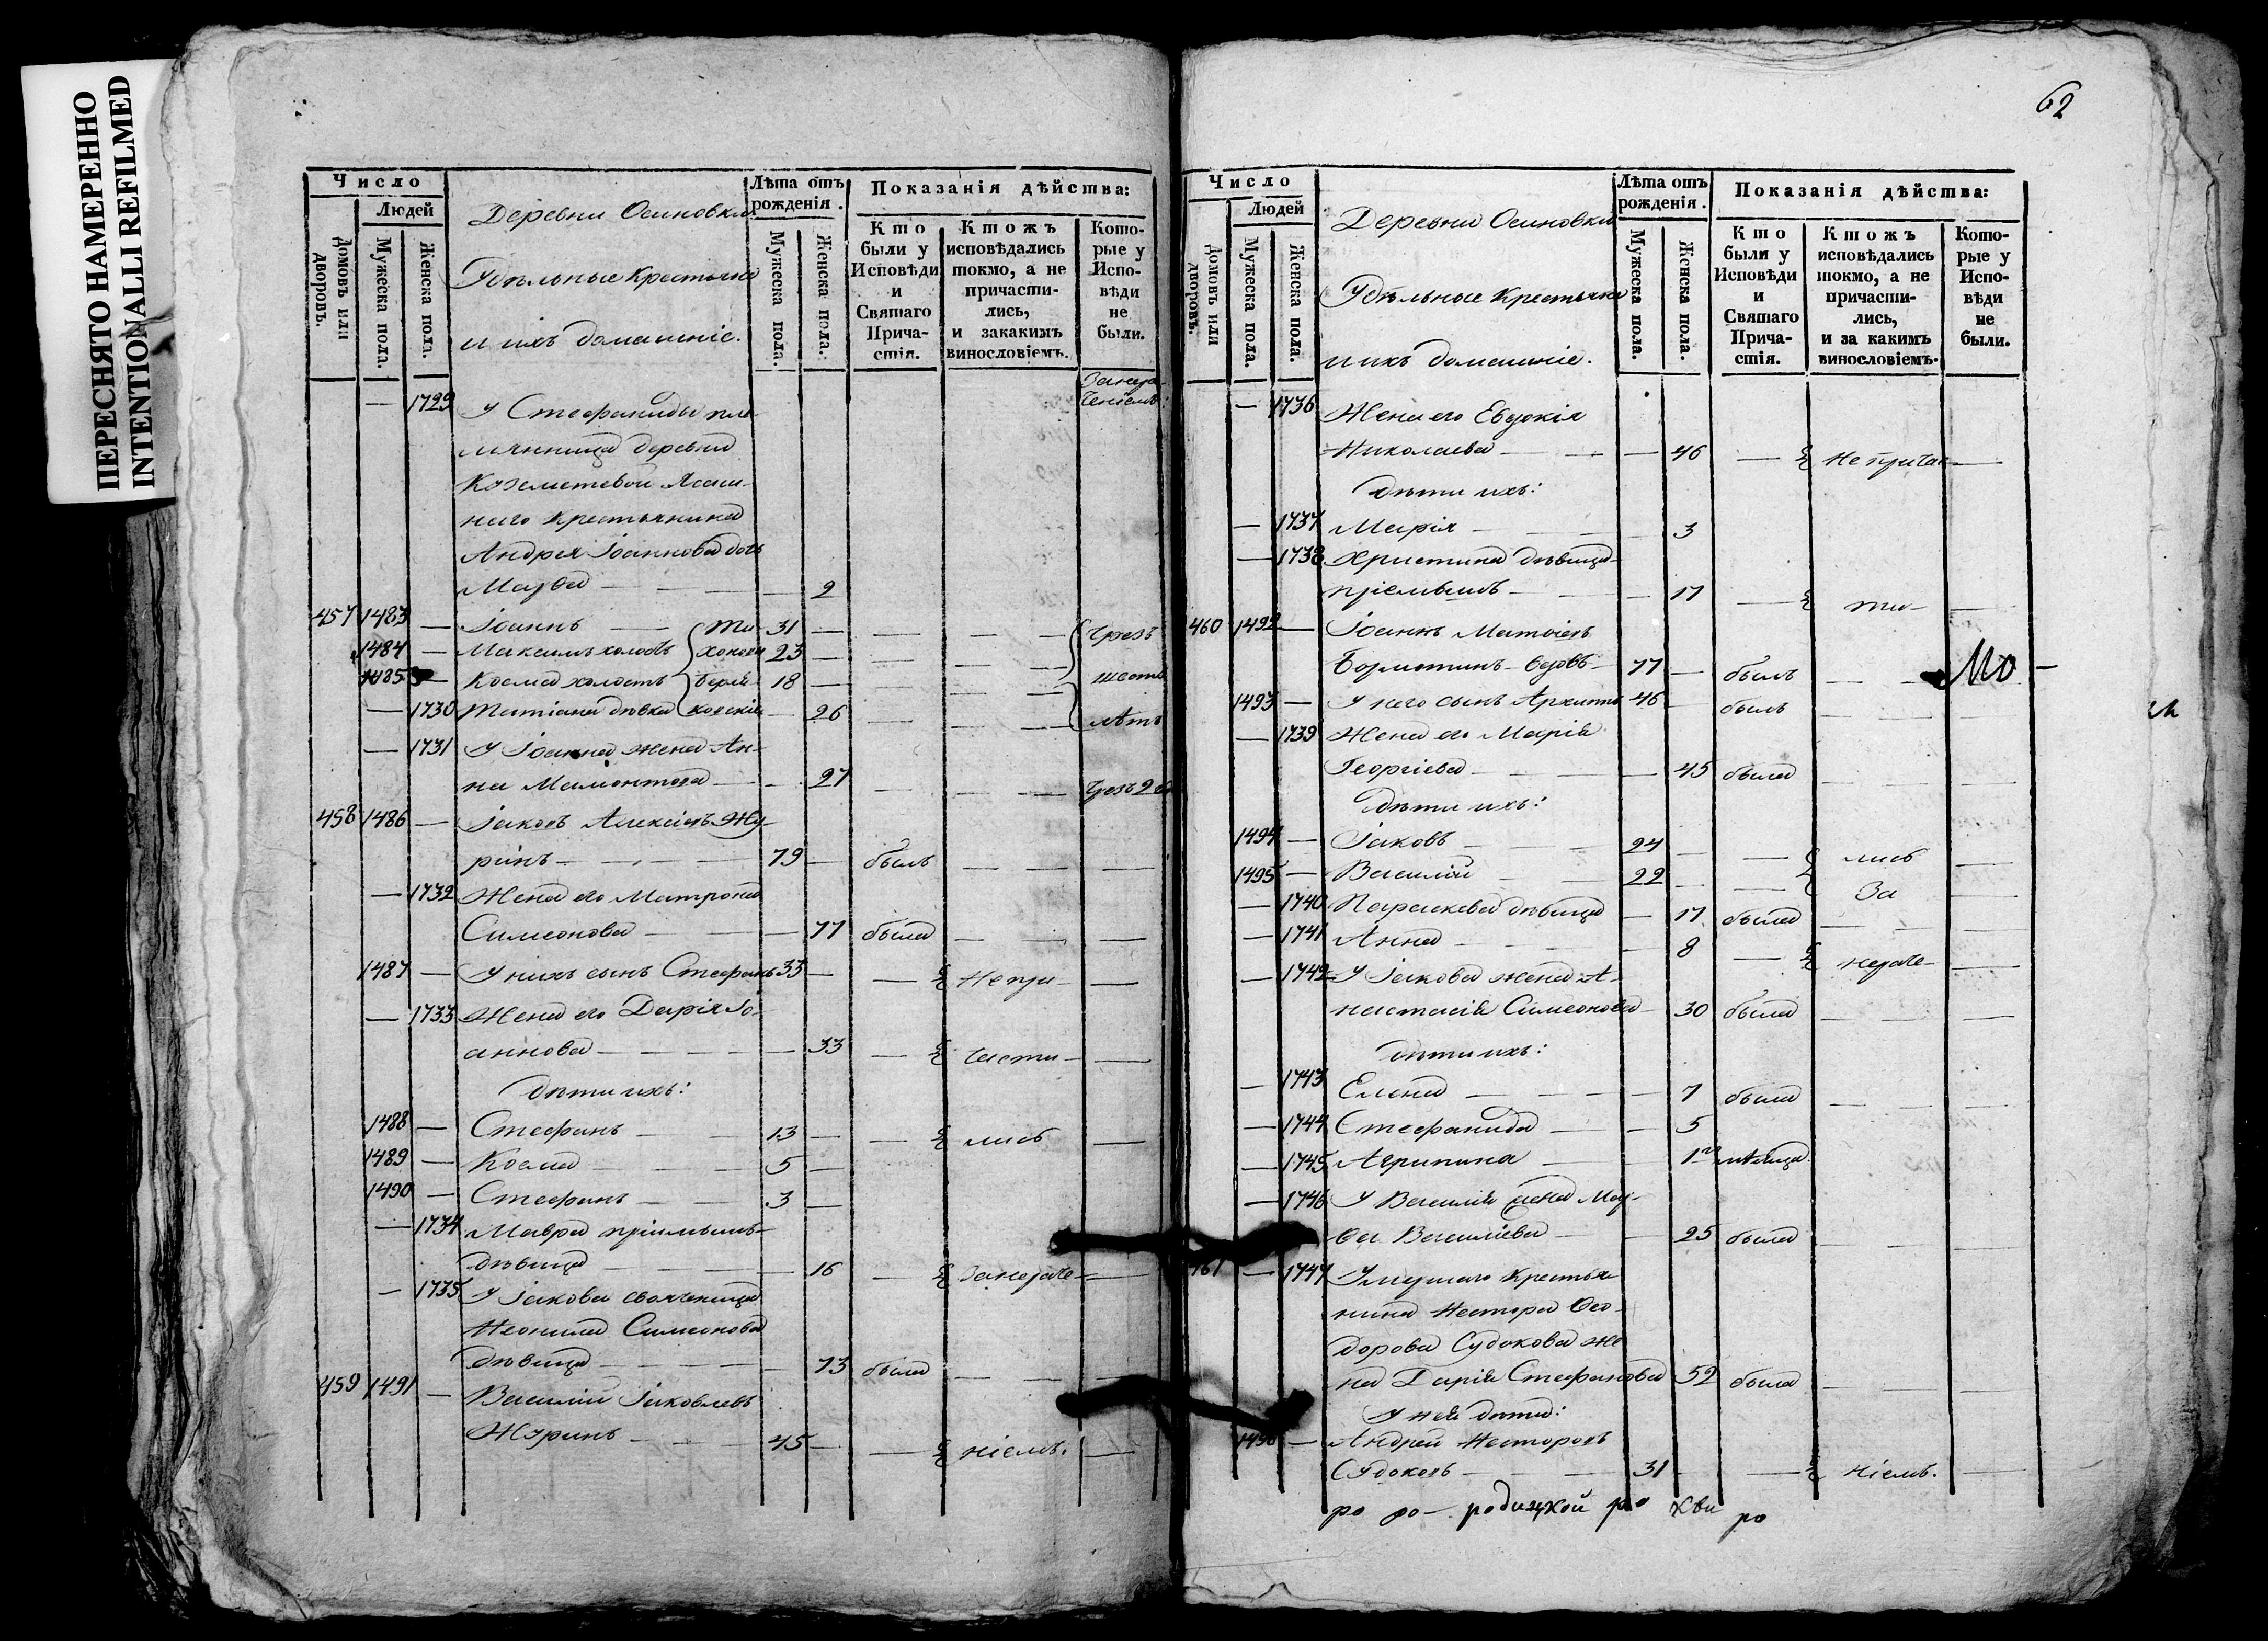 ПЕРЕСНЯТО НАМЕРЕННО
INTENTIONALLI REFILMED
Число
Людей
Домовъ или дворовъ.
Мужеска пола.
Женска пола.
Деревни Осиновки
Удѣльные крестьяне
и ихъ домашніе.
Лѣта отъ рожденія.
Мужеска пола.
Женска пола.
Показанія дѣйства:
Кто были у Исповѣди и Святаго Причастія.
Ктожъ исповѣдались токмо, а не причастились, и закакимъ винословіемъ.
Которые у Исповѣди не были.
— 1729 У Стефаниды пле-
мянница деревни
ясаш-
наго крестьянина
Андрея Іоаннова дочь
Марѳа — — 2
457 1483 — Іоаннъ — Ти- 31 — — — — Чрезъ
1484 — Максимъ холостъ хоновы 23 — — — —
1485 — Косма холостъ 18 — — — —
— 1730 Татіана дѣвка — 26 — — — лѣтъ
— 1731 У Іоанна жена Ан-
на Мамонтова — — 27 — — — Чрезъ 2
458 1486 — Іаковъ Алексіевъ Жу-
ринъ — — — 79 — былъ — — —
— 1732 Жена его Матрона
Симеонова — — 77 была — — —
1487 — У нихъ сынъ Стефанъ 33 — — Непри- —
— 1733 Жена его Дарія Іо-
аннова — — — 33 — части- —
дѣти ихъ:
1488 — Стефанъ — — 13 — — лись —
1489 — Косма — — 5 —
1490 — Стефанъ — — 3 —
— 1734 Мавра пріимышъ
дѣвица — — 16 — Занераче- —
— 1735 У Іакова своячиница
Неонила Симеонова
дѣвица — — 73 была — — —
459 1491 — Василій Іаковлевъ
Журинъ — — 45 — — ніемъ. —
62
Число
Людей
Домовъ или дворовъ.
Мужеска пола.
Женска пола.
Деревни Осиновки
Удѣльные крестьяне
и ихъ домашніе.
Лѣта отъ рожденія.
Мужеска пола.
Женска пола.
Показанія дѣйства:
Кто были у Исповѣди и Святаго Причастія.
Ктожъ исповѣдались токмо, а не причастились, и за какимъ винословіемъ.
Которые у Исповѣди не были.
— 1736 Жена его Евдокія
Николаева — — — 46 — Непричас- —
дѣти ихъ:
— 1737 Марія — — — 3
— 1738 Христина дѣвица
пріемышъ — — 17 — ти- —
460 1492 — Іоаннъ Матѳіевъ
вдовъ 77 — былъ — — Мо —
1493 — У него сынъ Архиппъ 46 — былъ — —
— 1739 Жена его Марія
Георгіева — — — 45 была — — —
дѣти ихъ:
1494 — Іаковъ — — 24 — — лись —
1495 — Василій — — 22 — — За —
— 1740 Параскева дѣвица — 17 была — — —
— 1741 Анна — — — 8 — нераче- —
— 1742 У Іакова жена А-
настасія Симеонова — 30 была — — —
дѣти ихъ:
— 1743 Елена — — — 7 была — — —
— 1744 Стефанида — — 5
— 1745 Агрипина — 1го мѣсяца.
— 1746 У Василія жена Мар-
ѳа Василіева — — 25 была — — —
461 — 1747 Умершаго крестья-
нина Нестора Ѳео-
дорова Судокова же-
на Дарія Стефанова 52 была — — —
У нея дѣти:
1496 — Андрей Несторовъ
Судоковъ — — 31 — — ніемъ. —
ро ро — родицкой ро кви ро